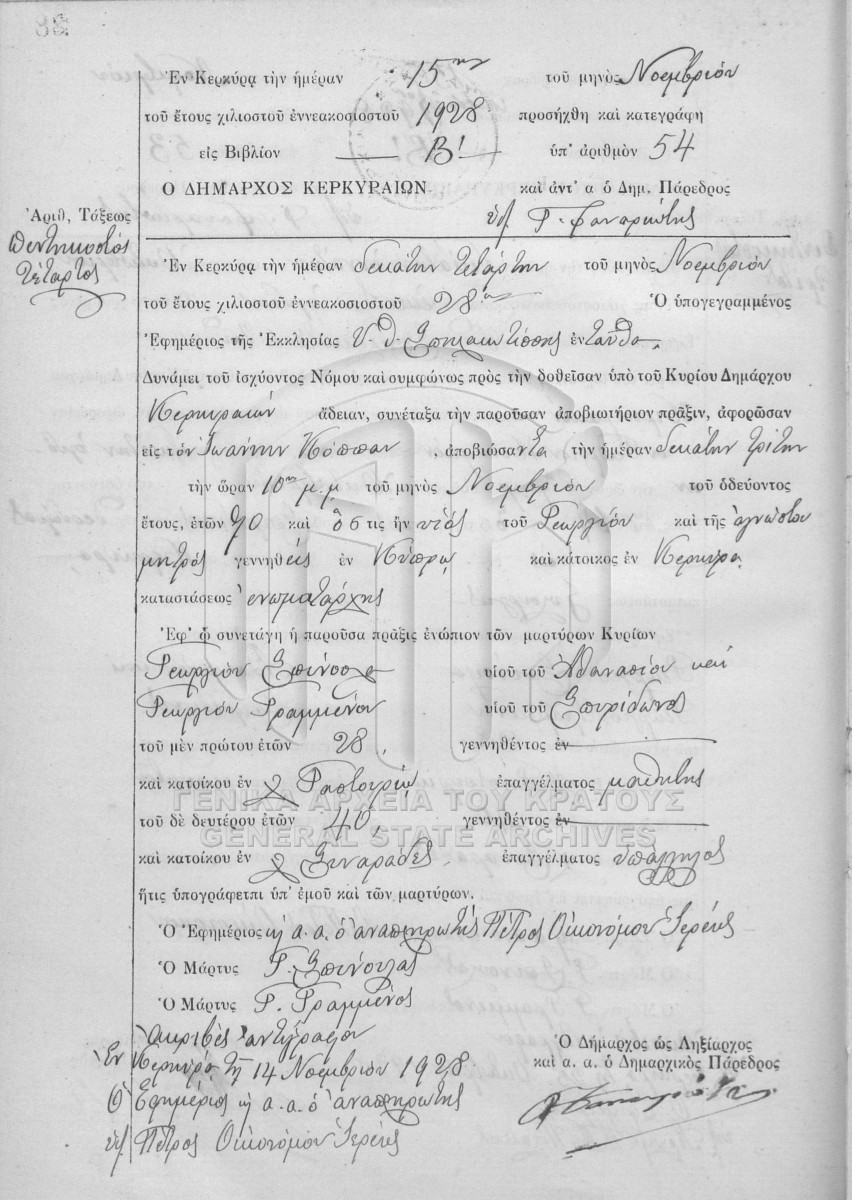 Ἐν Κερκύρᾳ τὴν ἡμέραν 15ην τοῦ μηνὸς Νοεμβρίου
τοῦ ἔτους χιλιοστοῦ ἐννεακοσιοστοῦ 1928 προσήχθη καὶ κατεγράφη
εἰς Βιβλίον Β! ὑπ' ἀριθμὸν 54
Ο ΔΗΜΑΡΧΟΣ ΚΕΡΚΥΡΑΙΩΝ καὶ ἀντ' α ὁ Δημ. Πάρεδρος
Γ. Φαναριώτης
Ἀριθ, Τάξεως
Πεντηκοστὸς
τέταρτος
Ἐν Κερκύρᾳ τὴν ἡμέραν δεκάτην τετάρτην τοῦ μηνὸς Νοεμβρίου
τοῦ ἔτους χιλιοστοῦ ἐννεακοσιοστοῦ 28 Ὁ ὑπογεγραμμένος
Ἐφημέριος τῆς Ἐκκλησίας Υ. Θ. Σπηλαιωτίσσης ἐνταῦθα.
Δυνάμει τοῦ ἰσχύοντος Νόμου καὶ συμφώνως πρὸς τὴν δοθεῖσαν ὑπὸ τοῦ Κυρίου Δημάρχου
Κερκυραίων ἄδειαν, συνέταξα τὴν παροῦσαν ἀποβιωτήριον πρᾶξιν, ἀφορῶσαν
εἰς τὸν Ἰωάννην Κόππαν, ἀποβιώσαντα τὴν ἡμέραν δεκάτην τρίτην
τὴν ὥραν 10ην μ.μ. τοῦ μηνὸς Νοεμβρίου τοῦ ὁδεύοντος
ἔτους, ἐτῶν 70 καὶ ὅστις ἦν υἱὸς τοῦ Γεωργίου καὶ τῆς ἀγνώστου
μητρὸς γεννηθεὶς ἐν Κύπρῳ καὶ κάτοικος ἐν Κερκύρᾳ
καταστάσεως ἐνωματάρχης
Ἐφ' ᾧ συνετάγη ἡ παροῦσα πρᾶξις ἐνώπιον τῶν μαρτύρων Κυρίων
Γεωργίου Σπίνουλα υἱοῦ τοῦ Ἀθανασίου καὶ
Γεωργίου Γραμμένου υἱοῦ τοῦ Σπυρίδωνος
τοῦ μὲν πρώτου ἐτῶν 28, γεννηθέντος ἐν
καὶ κατοίκου ἐν Γαστουρίῳ ἐπαγγέλματος μαθητὴς
ΓΕΝΙΚΑ ΑΡΧΕΙΑ ΤΟΥ ΚΡΑΤΟΥΣ
τοῦ δὲ δευτέρου ἐτῶν 40, γεννηθέντος ἐν
GENERAL STATE ARCHIVES
καὶ κατοίκου ἐν Σιναράδες ἐπαγγέλματος ὑπάλληλος
ἥτις ὑπογράφετπι ὑπ' ἐμοῦ καὶ τῶν μαρτύρων.
Ὁ Ἐφημέριος κ α. α. ὁ ἀναπληρωτὴς Πέτρος Οἰκονόμου Ἱερεὺς
Ὁ Μάρτυς Γ. Σπίνουλας
Ὁ Μάρτυς Γ. Γραμμένος
Ἀκριβὲς ἀντίγραφον
Ἐν Κερκύρᾳ τῇ 14 Νοεμβρίου 1928
Ὁ Ἐφημέριος κ α. α. ὁ ἀναπληρωτὴς
Πέτρος Οἰκονόμου Ἱερεὺς
Ὁ Δήμαρχος ὡς Ληξίαρχος
καὶ α. α. ὁ Δημαρχικὸς Πάρεδρος